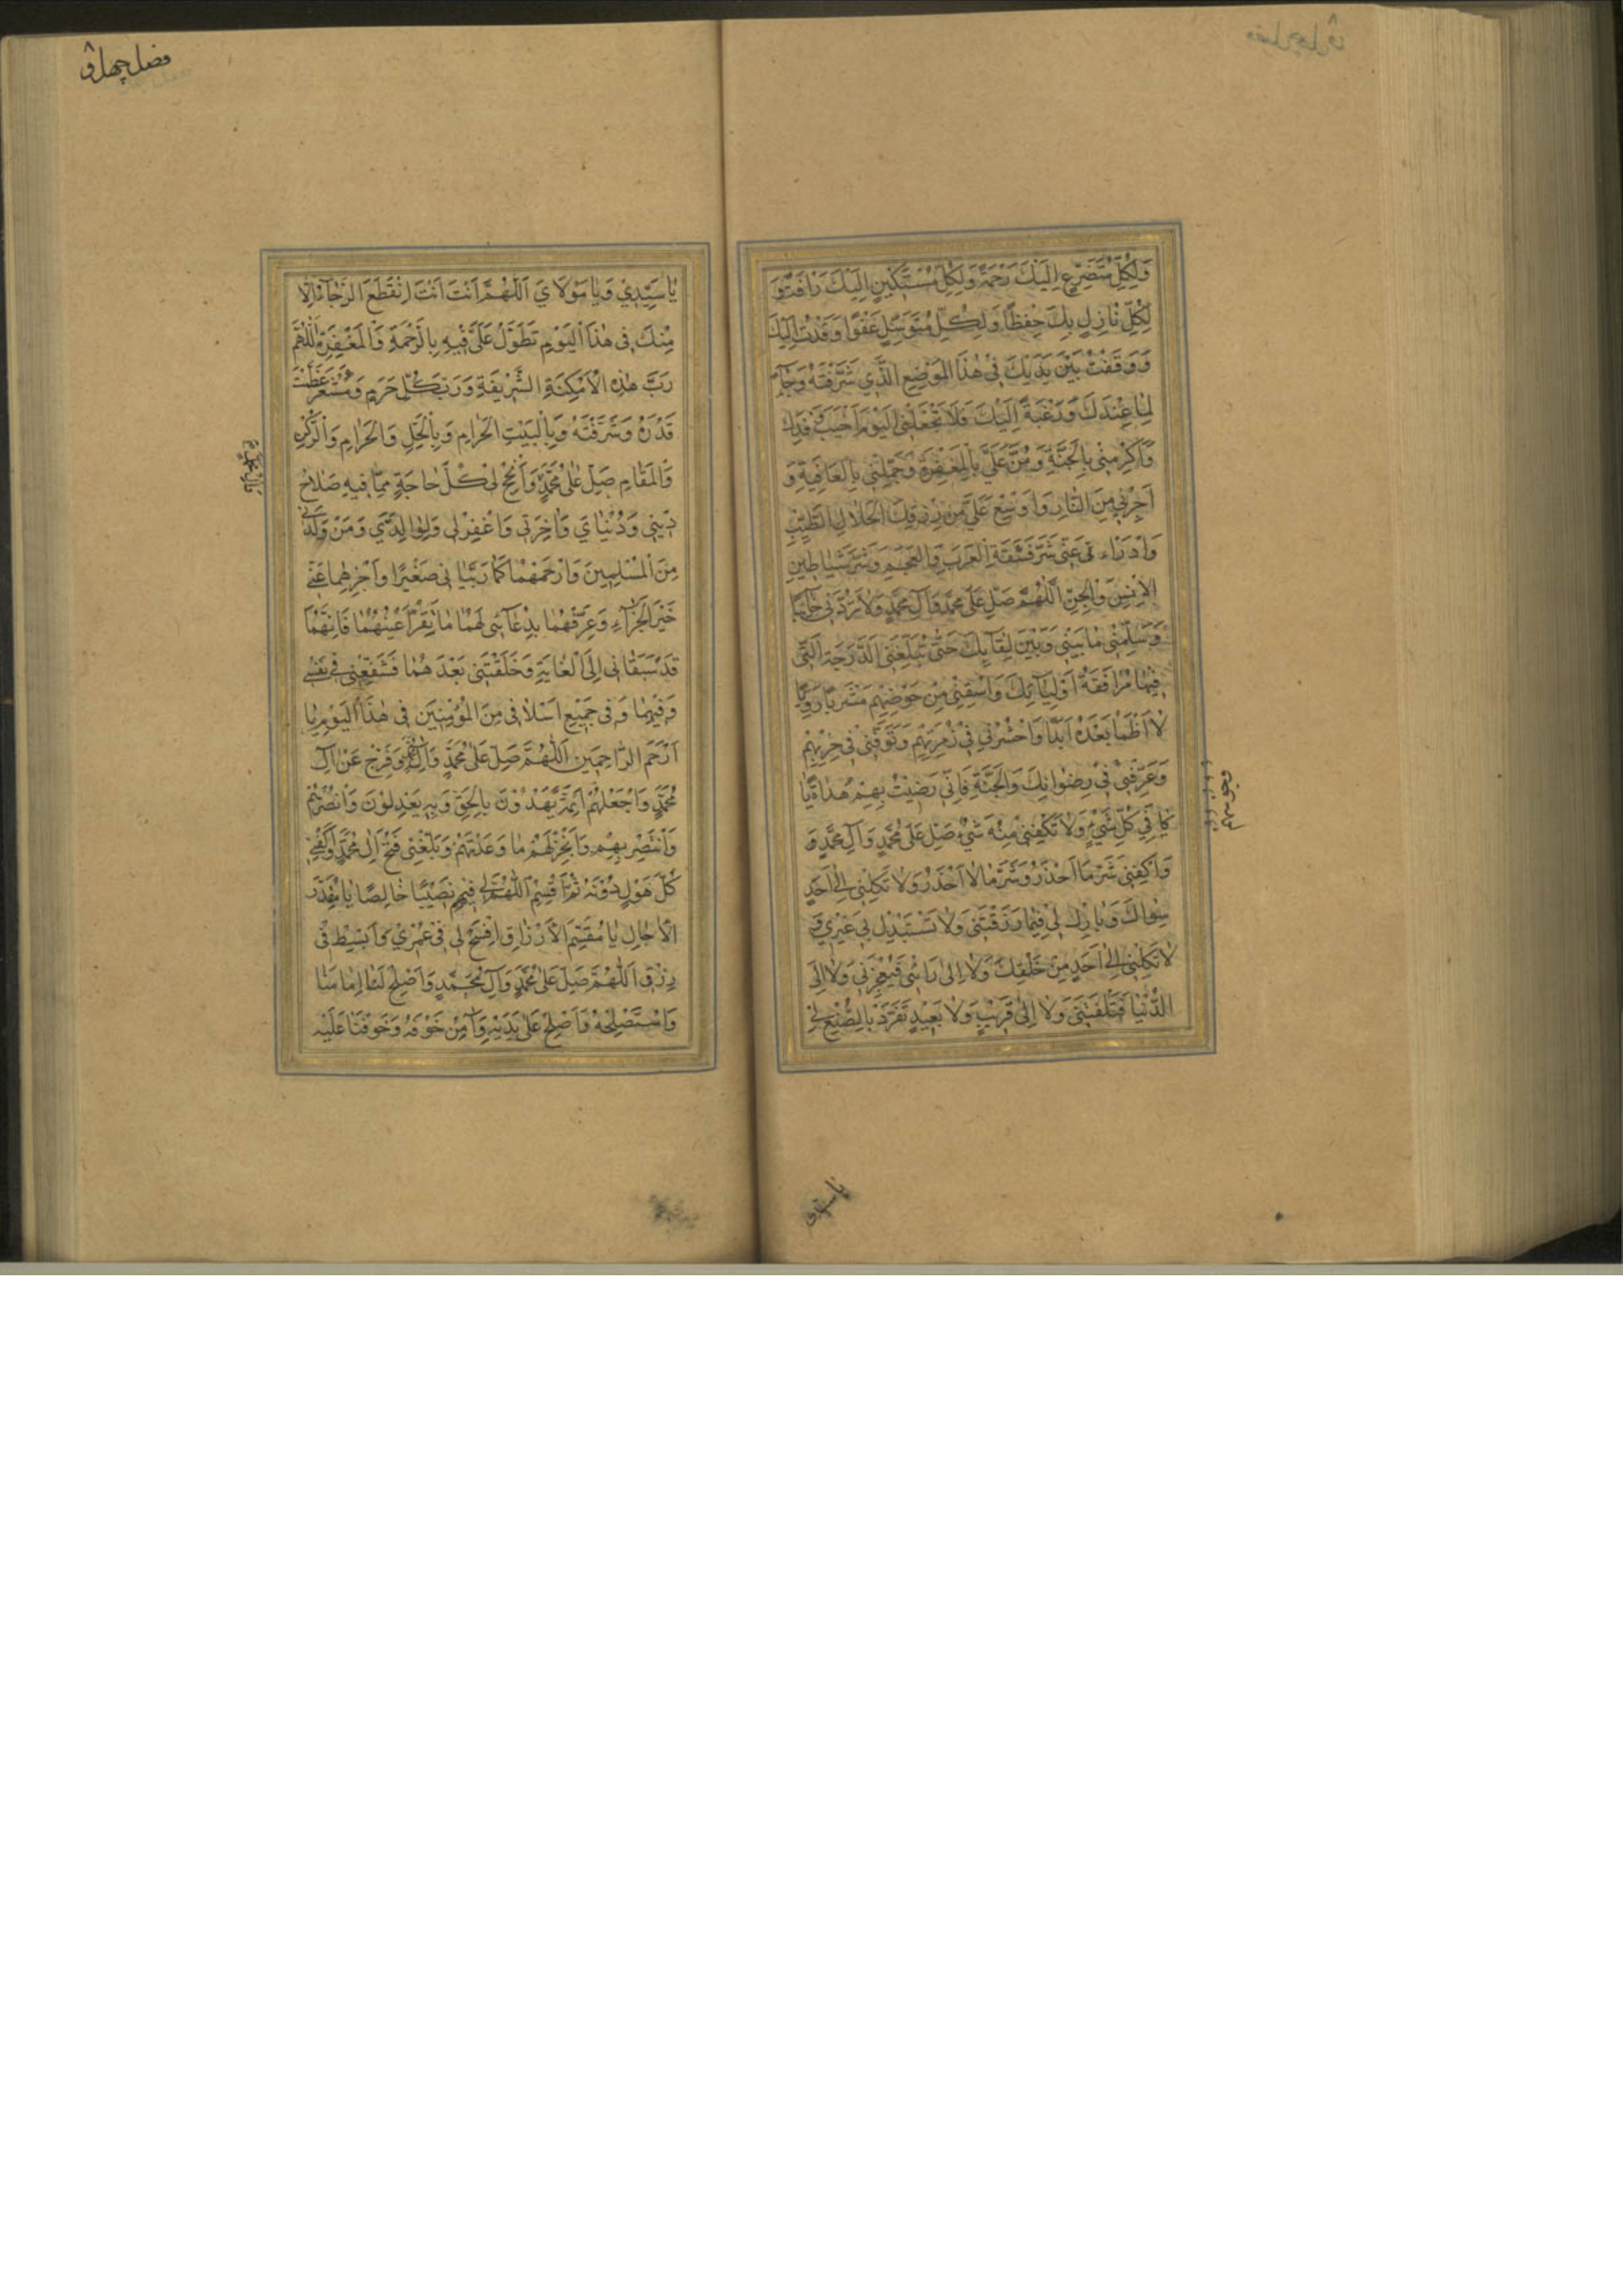 وَلِكُلِّ مُتَضَرِّعٍ اِلَيْكَ رَحْمَةً وَلِكُلِّ مُسْتَكِينٍ اِلَيْكَ رَافَةً وَ
لِكُلِّ نَازِلٍ بِكَ حِفْظًا وَلِكُلِّ مُتَوَسِّلٍ عَفْوًا وَقَدْ اِلَيْكَ
وَوَقَفْتُ بَيْنَ يَدَيْكَ فِى هٰذَا الْمَوْضِعِ الَّذِي شَرَّفْتَهُ
لِمَا عِنْدَكَ وَرَغْبَةً اِلَيْكَ فَلَا تَجْعَلْنِى الْيَوْمَ اَخْيَبَ وَفْدِكَ
وَاَكْرِمْنِى بِالْجَنَّةِ وَمُنَّ عَلَيَّ بِالْمَغْفِرَةِ وَجَمِّلْنِى بِالْعَافِيَةِ وَ
اَجِرْنِي مِنَ النَّارِ وَاَوْسِعْ عَلَيَّ مِنْ رِزْقِكَ الْحَلَالِ الطَّيِّبِ
وَادْرَاْء عَنِّى شَرَّ فَسَقَةِ الْعَرَبِ وَالْعَجَمِ وَشَرَّ شَيَاطِينِ
الْاِنْسِ وَالْجِنِّ اَللّٰهُمَّ صَلِّ عَلٰى مُحَمَّدٍ وَآلِ مُحَمَّدٍ وَلَا تَرُدَّنِى خَائِبًا
وَسَلِّمْنِى مَا بَيْنِى وَبَيْنَ لِقَائِكَ حَتّٰى تُبَلِّغَنِى الدَّرَجَةَ الَّتِى
فِيهَا مُرَافَقَةُ اَوْلِيَائِكَ وَاسْقِنِى مِنْ حَوْضِهِمْ مَشْرَبًا رَوِيًّا
لَا اَظْمَأُ بَعْدَهُ اَبَدًا وَاحْشُرْنِى فِى زُمْرَتِهِمْ وَتَوَفَّنِى فِى حِزْبِهِمْ
وَعَرِّفْنِى فِى رِضْوَانِكَ وَالْجَنَّةِ فَاِنِّى رَضِيتُ بِهِمْ هُدَاةً يَا
كَافِيَ كُلِّ شَيْءٍ وَلَا تَكْفِينِى مِنْهُ شَيْءٌ صَلِّ عَلٰى مُحَمَّدٍ وَآلِ مُحَمَّدٍ وَ
وَاكْفِنِى شَرَّ مَا اَحْذَرُ وَشَرَّ مَا لَا اَحْذَرُ وَلَا تَكِلْنِى اِلٰى اَحَدٍ
سِوَاكَ وَبَارِكْ لِى فِيمَا رَزَقْتَنِى وَلَا تَسْتَبْدِلْ بِى غَيْرِي وَ
لَا تَكِلْنِى اِلٰى اَحَدٍ مِنْ خَلْقِكَ وَلَا اِلٰى رَائِى فَيُعْجِزَنِى وَلَا اِلَى
الدُّنْيَا فَتَلْفِظَنِى وَلَا اِلٰى قَرِيبٍ وَلَا بَعِيدٍ تَفَرَّدْ بِالصُّنْعِ لِى
يا سيدى
فصل چهارم
يَا سَيِّدِي وَيَا مَوْلَايَ اَللّٰهُمَّ اَنْتَ اَنْتَ اِنْقَطَعَ الرَّجَاءُ اِلَّا
مِنْكَ فِى هٰذَا الْيَوْمِ تَطَوَّلْ عَلَيَّ فِيهِ بِالرَّحْمَةِ وَالْمَغْفِرَةِ اَللّٰهُمَّ
رَبَّ هٰذِهِ الْاَمْكِنَةِ الشَّرِيفَةِ وَرَبَّ كُلِّ حَرَمٍ وَمَشْعَرٍ عَظَّمْتَ
قَدْرَهُ وَشَرَّفْتَهُ وَبِالْبَيْتِ الْحَرَامِ وَبِالْحِلِّ وَالْحَرَامِ وَالرُّكْنِ
وَالْمَقَامِ صَلِّ عَلٰى مُحَمَّدٍ وَاَنْجِحْ لِى كُلَّ حَاجَةٍ مِمَّا فِيهِ صَلَاحُ
دِينِى وَدُنْيَايَ وَاٰخِرَتِى وَاغْفِرْ لِى وَلِوَالِدَيَّ وَمَنْ وَلَدَنِى
مِنَ الْمُسْلِمِينَ وَارْحَمْهُمَا كَمَا رَبَّيَانِى صَغِيرًا وَاَجْزِهِمَا عَنِّى
خَيْرَ الْجَزَاءِ وَعَرِّفْهُمَا بِدُعَائِى لَهُمَا مَا يَقَرُّ اَعْيُنَهُمَا فَاِنَّهُمَا
قَدْ سَبَقَانِى اِلَى الْغَايَةِ وَخَلَّفْتَنِى بَعْدَهُمَا فَشَفِّعْنِى فِى نَفْسِى
وَفِيهِمَا وَفِى جَمِيعِ اَسْلَافِى مِنَ الْمُؤْمِنِينَ فِى هٰذَا الْيَوْمِ يَا
اَرْحَمَ الرَّاحِمِينَ اَللّٰهُمَّ صَلِّ عَلٰى مُحَمَّدٍ وَآلِ مُحَمَّدٍ وَفَرِّجْ عَنْ اٰلِ
مُحَمَّدٍ وَاجْعَلْهُمْ اَئِمَّةً يَهْدُوْنَ بِالْحَقِّ وَبِهِ يَعْدِلُوْنَ وَانْصُرْهُمْ
وَانْتَصِرْ بِهِمْ وَاَنْجِزْ لَهُمْ مَا وَعَدْتَهُمْ وَبَلِّغْنِى فَتْحَ اٰلِ مُحَمَّدٍ وَاكْفِنِى
كُلَّ هَوْلٍ دُوْنَهُ ثُمَّ اَقْسِمِ اللّٰهُمَّ لِى فِيهِمْ نَصِيبًا خَالِصًا يَا مُقَدِّرَ
الْاٰجَالِ يَا مُقَسِّمَ الْاَرْزَاقِ اِفْسَحْ لِى فِى عُمُرِي وَابْسُطْ فِى
رِزْقِى اَللّٰهُمَّ صَلِّ عَلٰى مُحَمَّدٍ وَآلِ مُحَمَّدٍ وَاَصْلِحْ لَنَا اِمَامَنَا
وَاسْتَصْلِحْهُ وَاَصْلِحْ عَلٰى يَدَيْهِ وَآمِنْ خَوْفَهُ وَخَوْفَنَا عَلَيْهِ